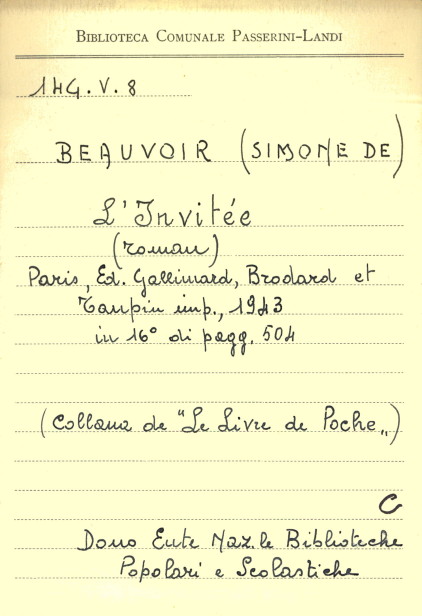 BIBLIOTECA COMUNALE PASSERINI-LANDI
14G.V.8
BEAUVOIR (SIMONE DE)
L'Invitée
(roman)
Paris, Ed. Gallimard, Brodard et
Taupin imp., 1943
in 16° di pagg. 504
(Collana de "Le Livre de Poche„)
C
Dono Ente Naz.le Biblioteche
Popolari e Scolastiche